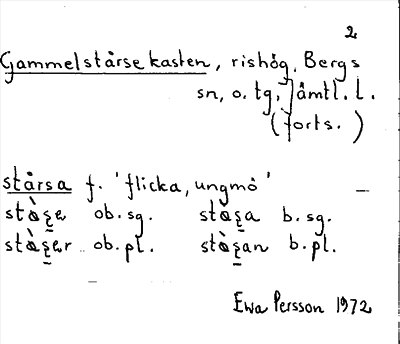 2
Gammelstårsekasten, rishög. Bergs
sn, o. tg. Jämtl. l.
(forts.)
stårsa f. 'flicka, ungmö'
ob. sg. b. sg.
ob. pl. b. pl.
Ewa Persson 1972